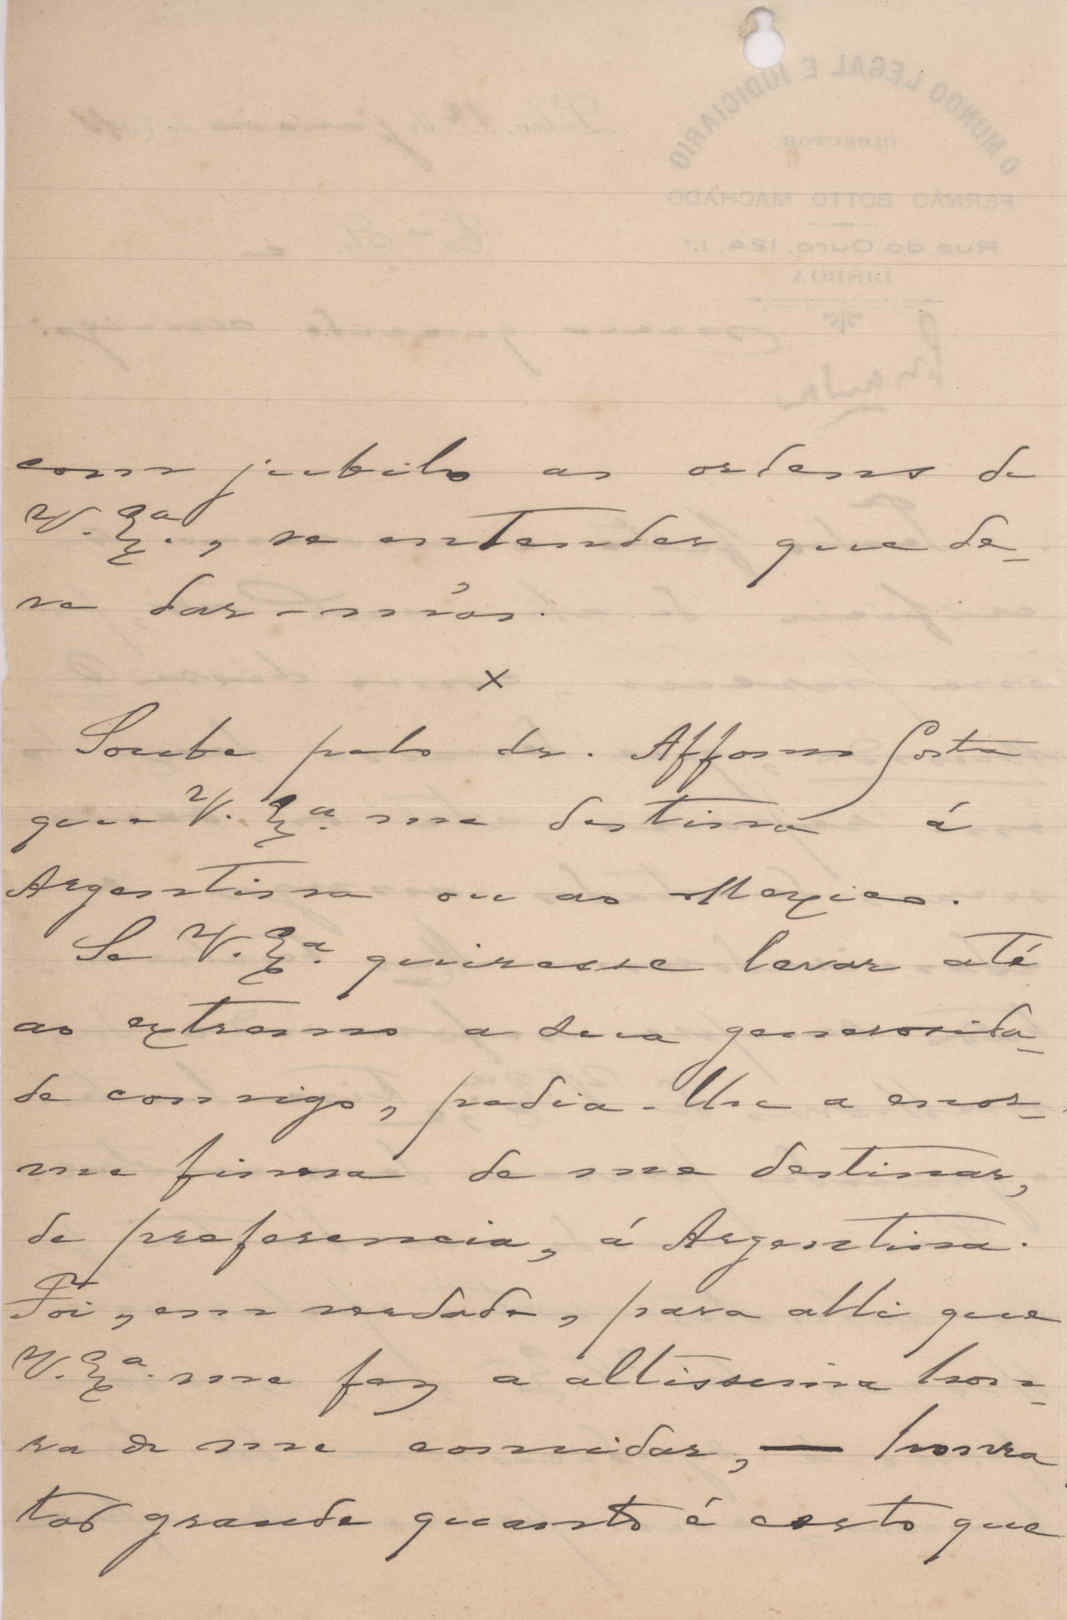 com jubilo as ordens de
V. Exª., se entender que de-
va dar-m'as.
×
Soube pelo dr. Affonso Costa
que V. Exª. me destina á
Argentina ou ao Mexico.
Se V. Exª. quizesse levar até
ao extremo a sua generosida-
de commigo, pedia-lhe a enor-
me fineza de me destinar,
de preferencia, á Argentina.
Foi, em verdade, para alli que
V. Exª. me fez a altissima hon-
ra de me convidar, — honra
tão grande quanto é certo que